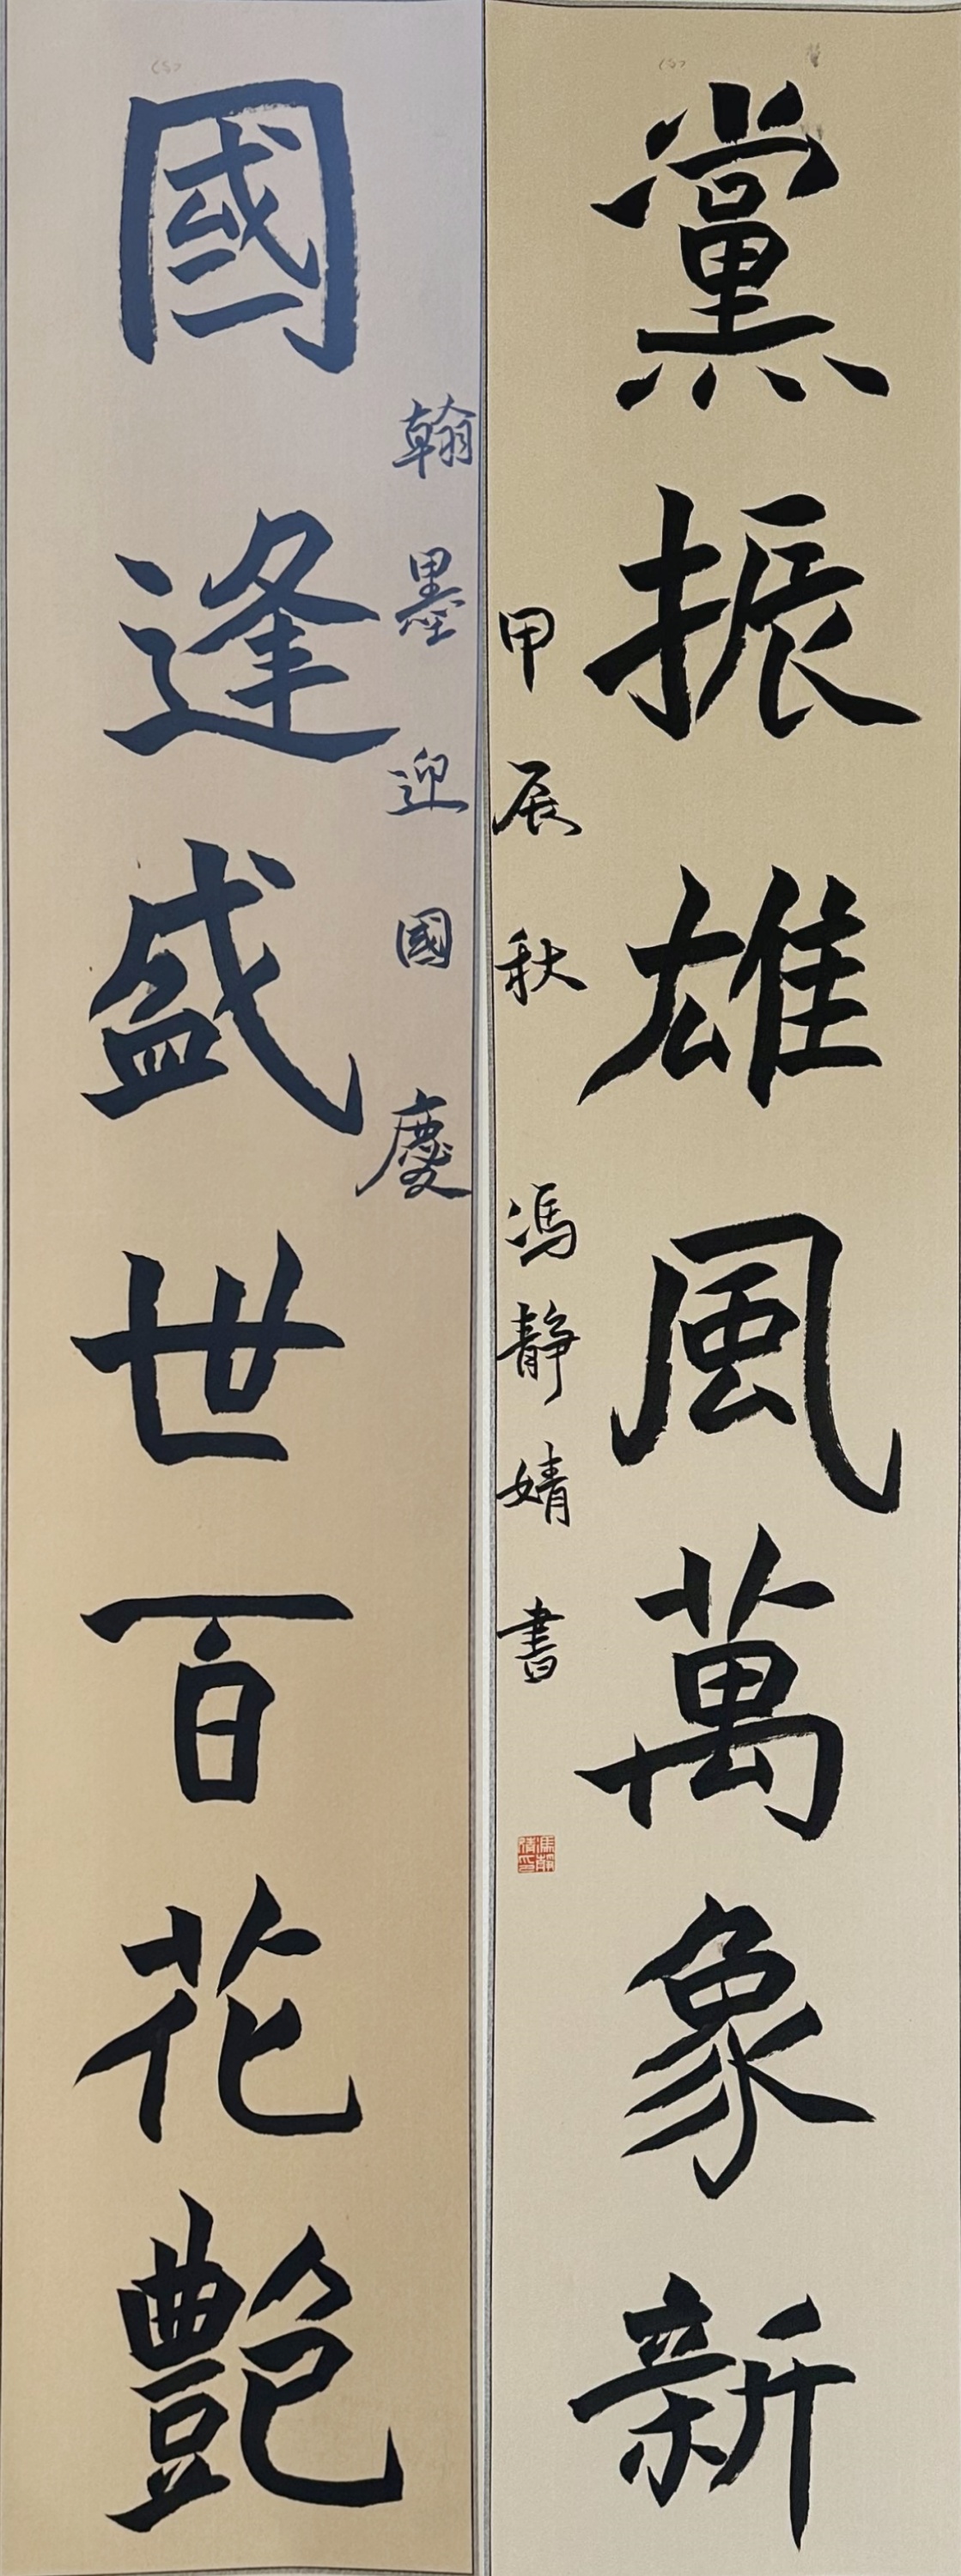 黨振雄風萬象新
甲辰秋 馮靜婧書
國逢盛世百花艷
翰墨迎國慶